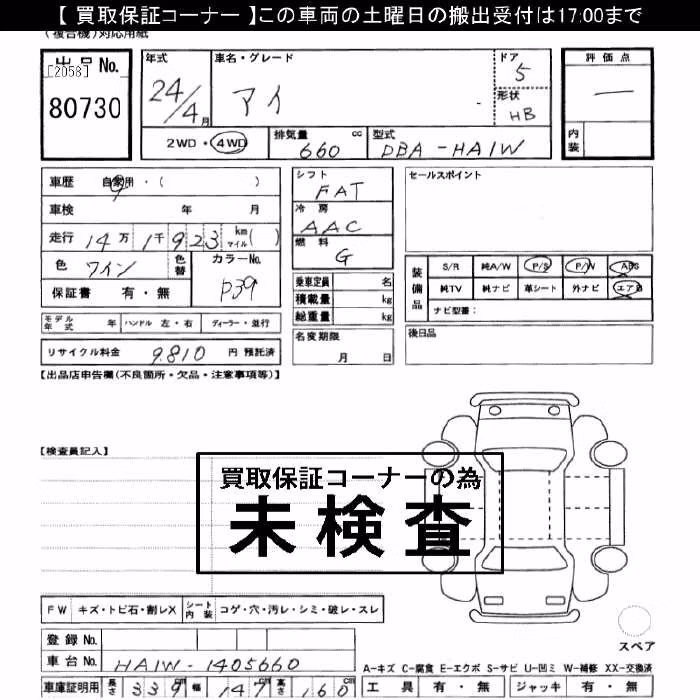 【 買取保証コーナー 】この車両の土曜日の搬出受付は17:00まで
(複合機)対応用紙
出品 No.
[2058]
80730
年式
24/4月
車名・グレード
アイ
ドア
5
形状
HB
2WD・4WD
排気量 cc
660
型式
DBA-HA1W
評価点
内装
車歴 自家用・( )
車検 年 月
走行 14万 1千 923 km マイル( )
色 ワイン 色替 カラーNo.
P39
保証書 有・無
シフト
FAT
冷房
AAC
燃料
G
乗車定員 名
積載量 kg
総重量 kg
セールスポイント
装備品
S/R 純A/W P/S P/W ABS
純TV 純ナビ 革シート 外ナビ エアB
ナビ型番:
モデル年式 年 ハンドル 左・右 ディーラー・並行
名変期限
月 日
後日品
リサイクル料金 9810 円 預託済
【出品店申告欄(不良箇所・欠品・注意事項等)】
【検査員記入】
買取保証コーナーの為
未検査
FW キズ・トビ石・割レX シート内装 コゲ・穴・汚レ・シミ・破レ・スレ
スペア
登録 No.
車台 No. HA1W-1405660
A-キズ C-腐食 E-エクボ S-サビ U-凹ミ W-補修 XX-交換済
車庫証明用 長さ 339cm 幅 147cm 高さ 160cm
工具 有・無 ジャッキ 有・無